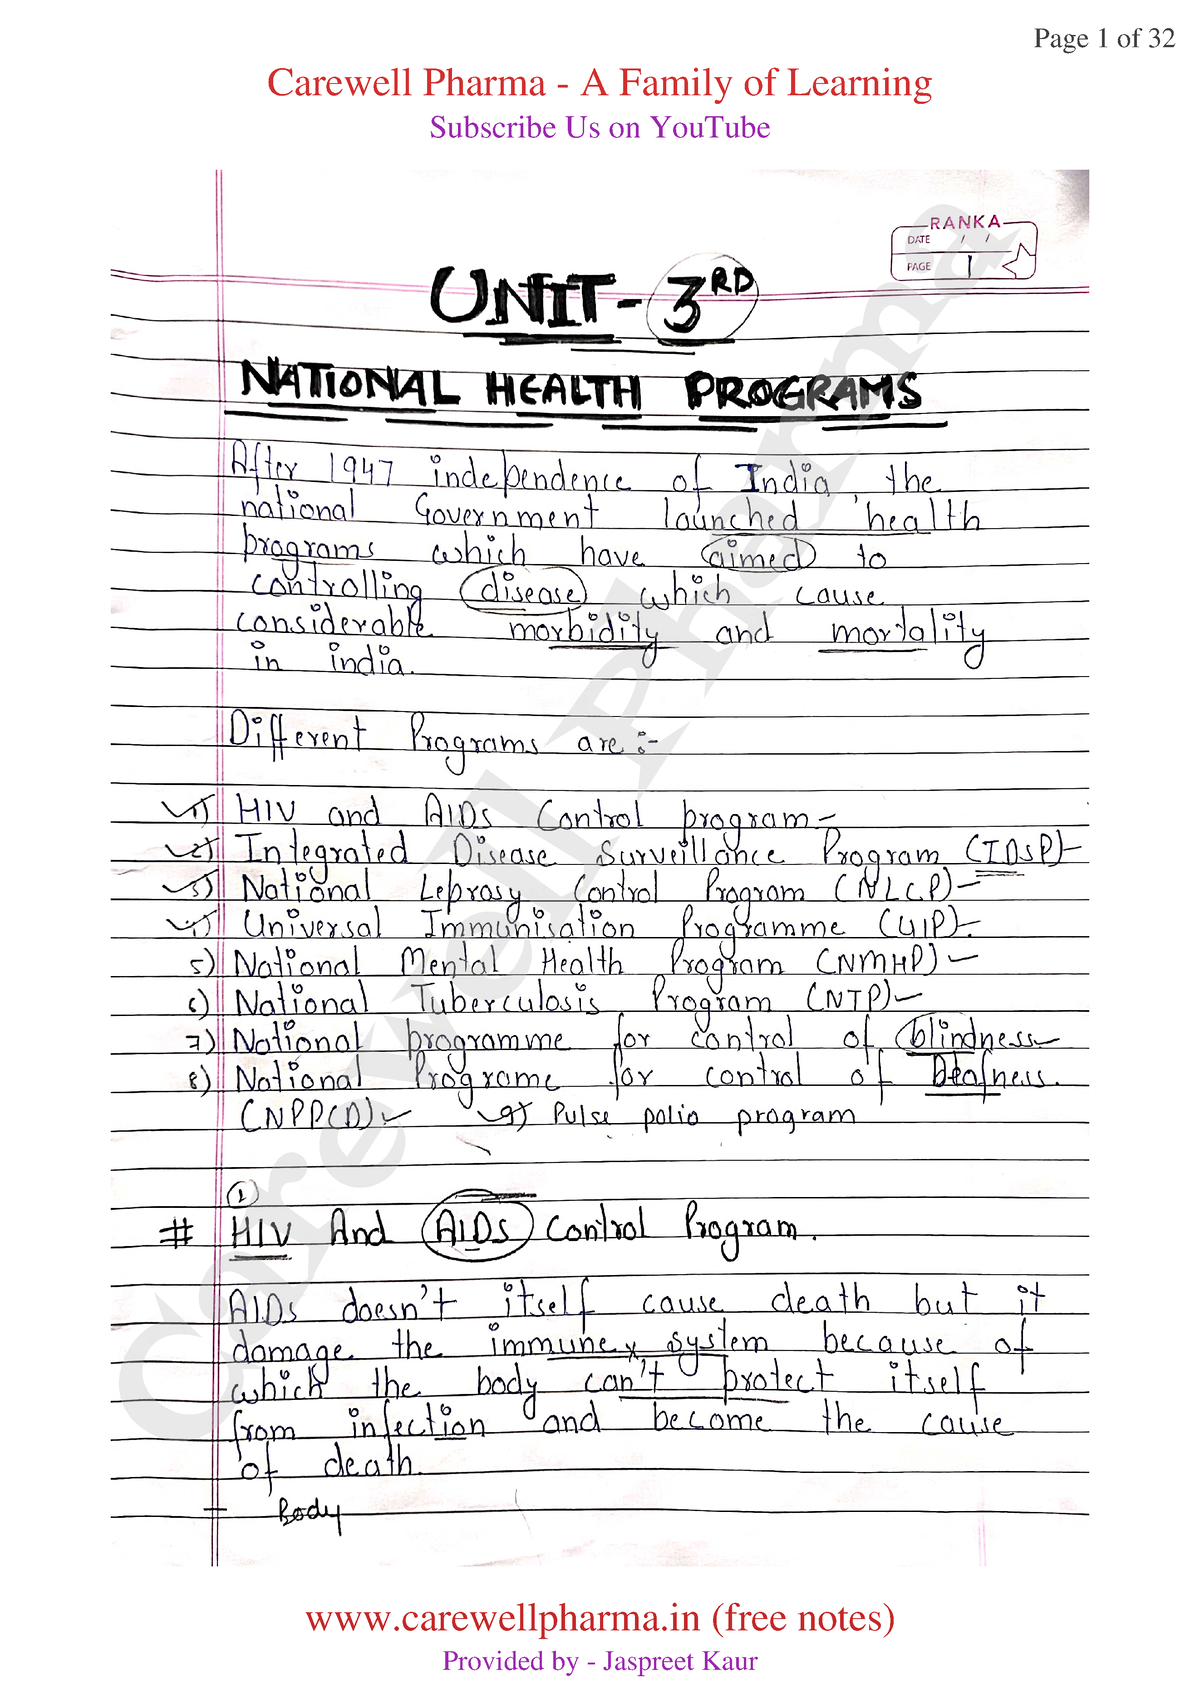 Page 1 of 32
Carewell Pharma - A Family of Learning
Subscribe Us on YouTube
RANKA
DATE / /
PAGE 1
UNIT-3RD
NATIONAL HEALTH PROGRAMS
After 1947 independence of India, the
national Government launched health
programs which have aimed to
controlling disease which cause
considerable morbidity and mortality
in india.
Different Programs are :-
1) HIV and AIDS Control program-
2) Integrated Disease Surveillance Program (IDSP)-
3) National Leprosy Control Program (NLCP)-
4) Universal Immunisation Programme (UIP)-
5) National Mental Health Program (NMHP)-
6) National Tuberculosis Program (NTP)-
7) National programme for control of blindness-
8) National Programe for control of Deafness.
(NPPCD)- 9) Pulse polio program
1
# HIV And AIDS Control Program.
AIDs doesn't itself cause death but it
damage the immune system because of
which the body can't protect itself
from infection and become the cause
of death.
Body
Carewell Pharma
www.carewellpharma.in (free notes)
Provided by - Jaspreet Kaur